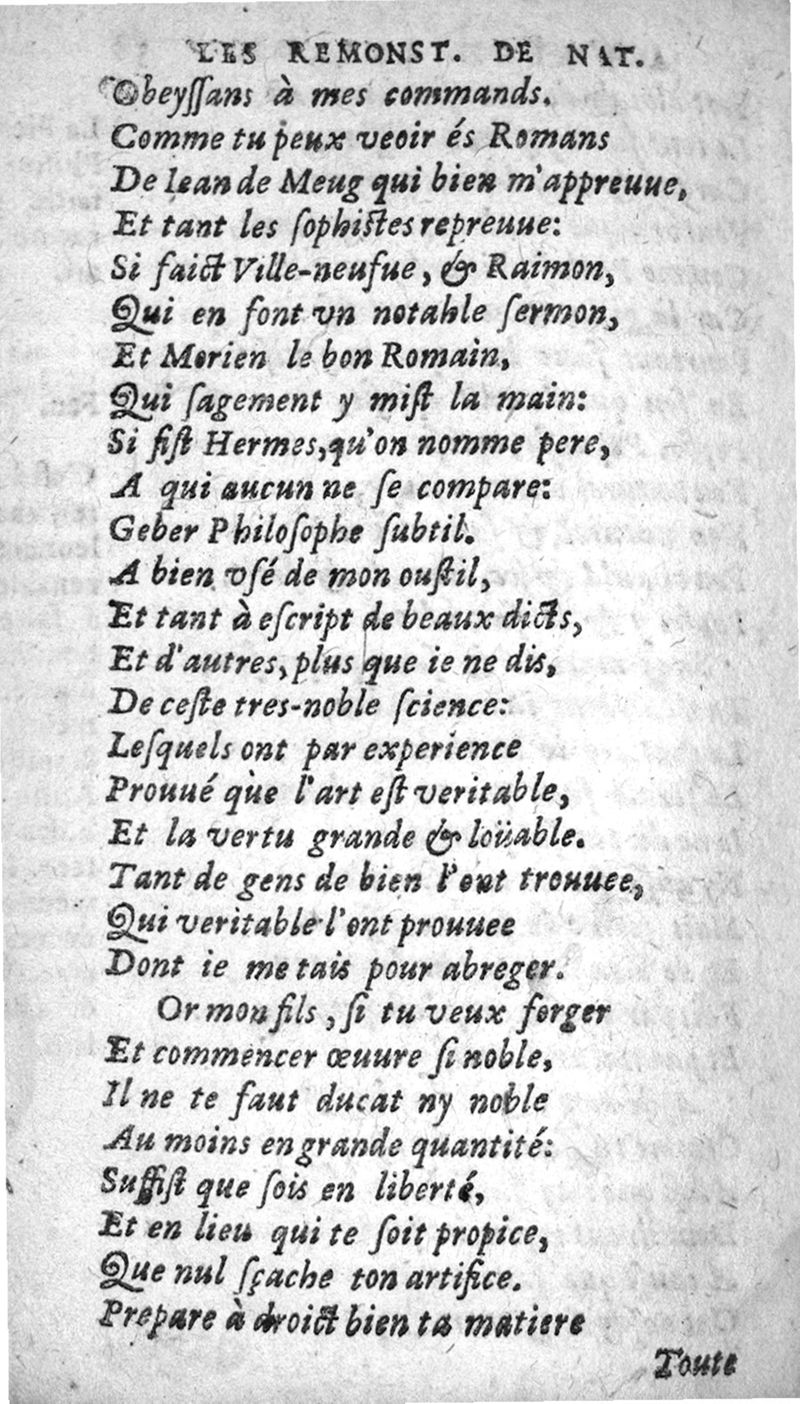 LES REMONST. DE NAT.
Obeyſſans à mes commands.
Comme tu peux veoir és Romans
De Iean de Meug qui bien m'appreuue,
Et tant les ſophiſtes repreuue:
Si faict Ville-neufue, & Raimon,
Qui en font vn notable ſermon,
Et Morien le bon Romain,
Qui ſagement y miſt la main:
Si fiſt Hermes, qu'on nomme pere,
A qui aucun ne ſe compare:
Geber Philoſophe ſubtil.
A bien vſé de mon ouſtil,
Et tant à eſcript de beaux dicts,
Et d'autres, plus que ie ne dis,
De ceſte tres-noble ſcience:
Leſquels ont par experience
Prouué que l'art eſt veritable,
Et la vertu grande & loüable.
Tant de gens de bien l'ont trouuee,
Qui veritable l'ont prouuee
Dont ie me tais pour abreger.
Or mon fils, ſi tu veux forger
Et commencer œuure ſi noble,
Il ne te faut ducat ny noble
Au moins en grande quantité:
Suffiſt que ſois en liberté,
Et en lieu qui te ſoit propice,
Que nul ſçache ton artifice.
Prepare à droict bien ta matiere
Toute